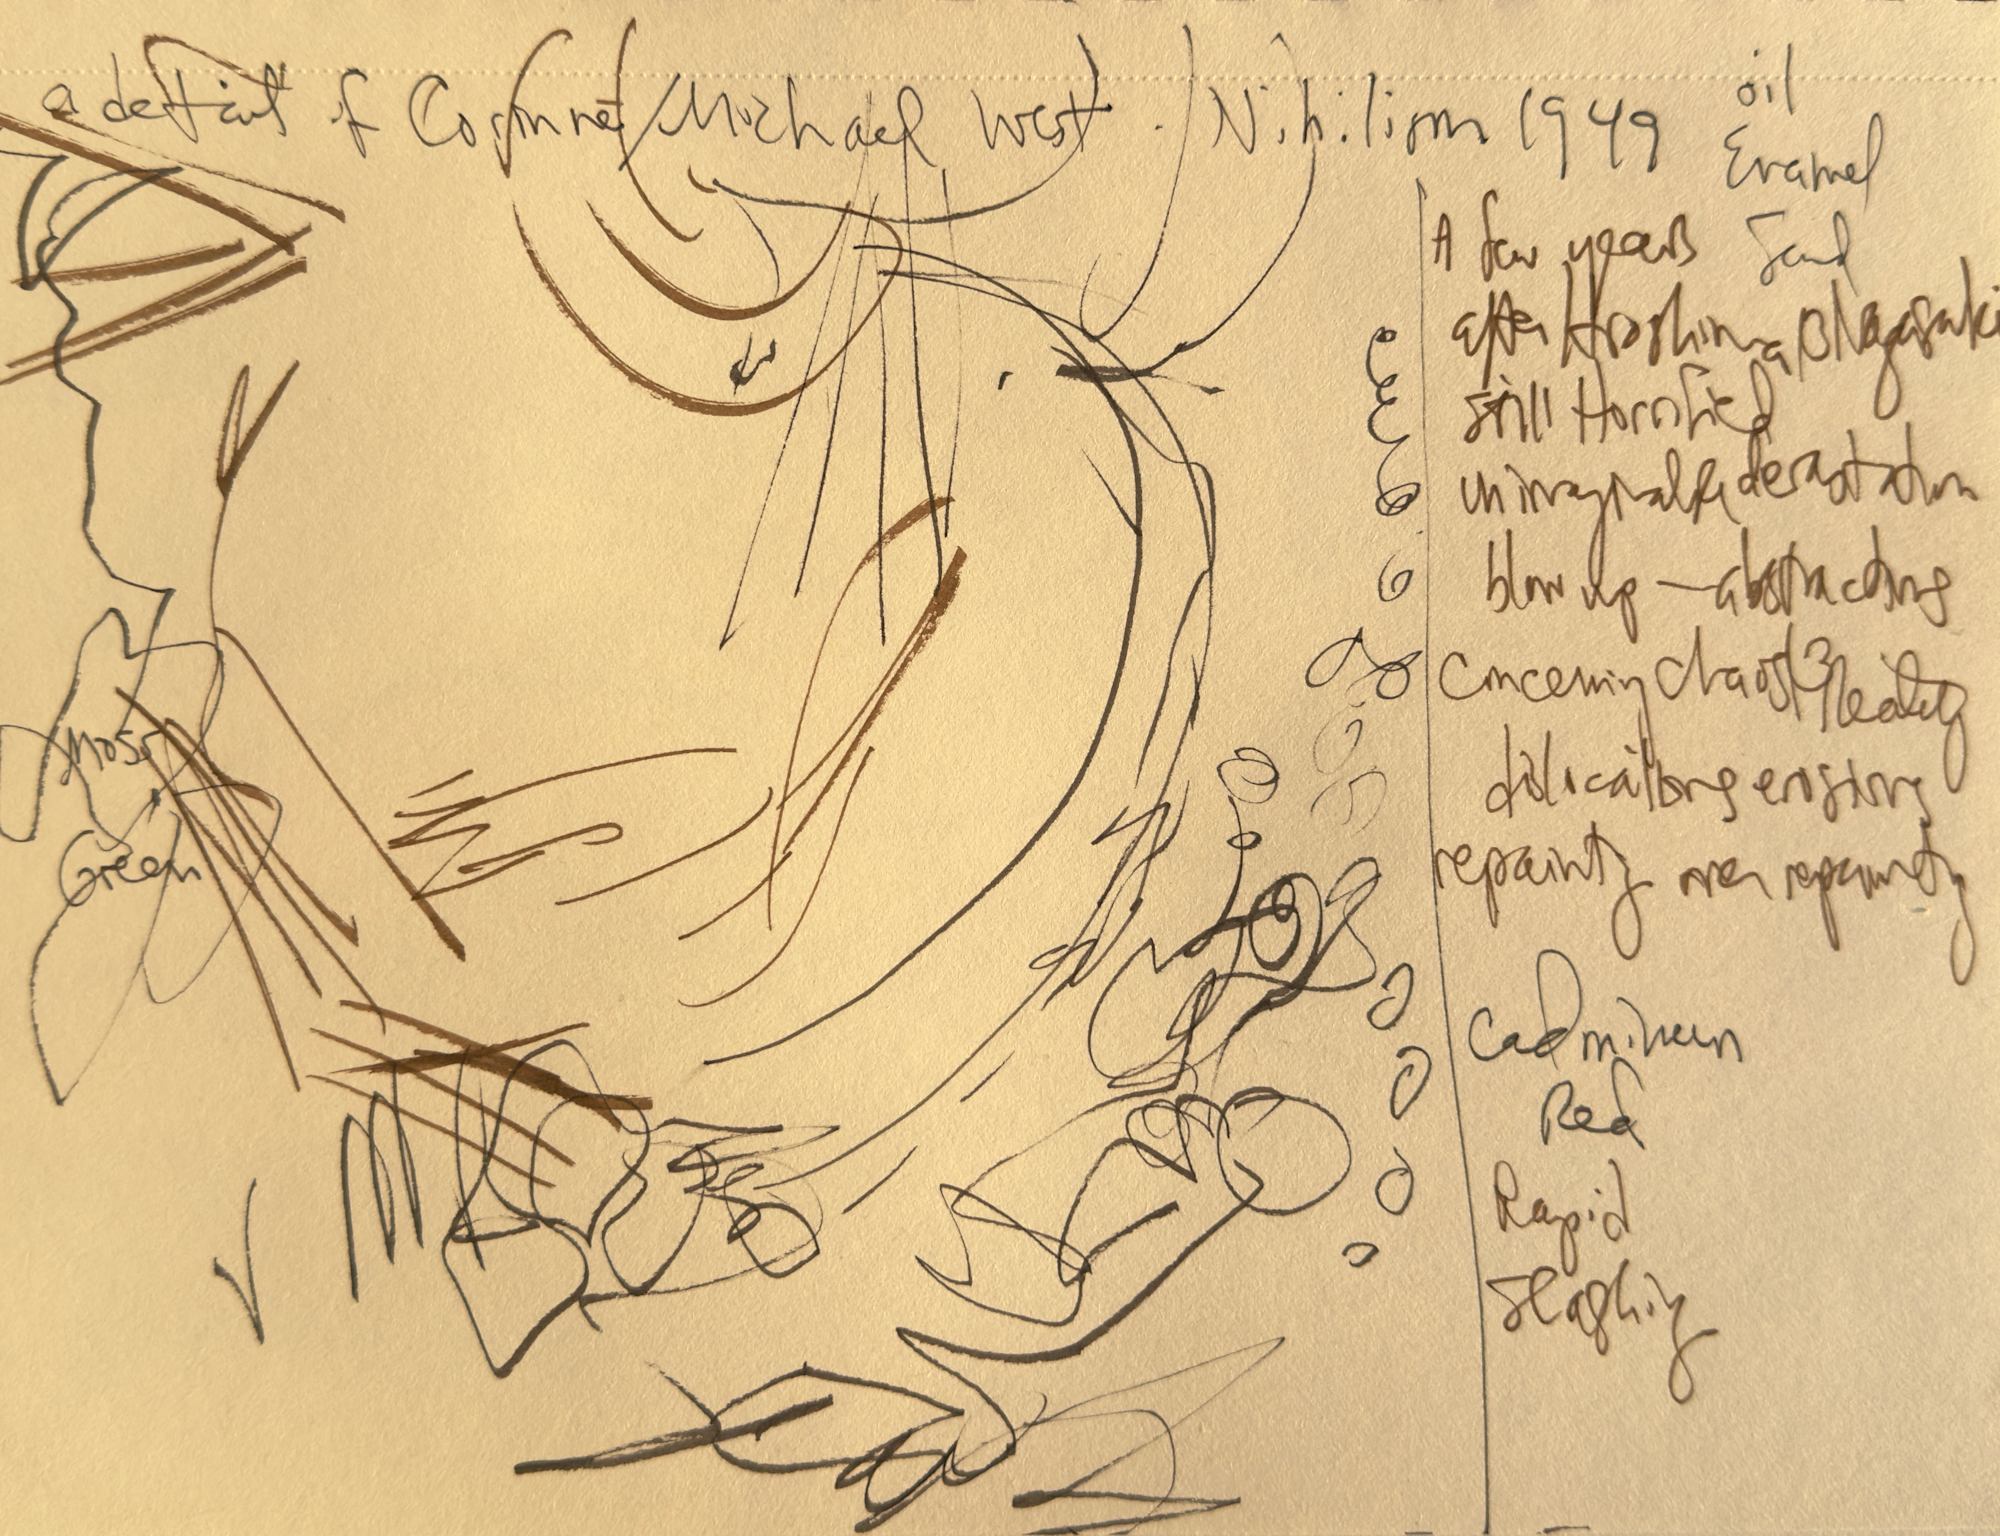 a detail of Corinne/Michael West. Nihilism 1949
oil
Enamel
Sand
A few years
after Hiroshima & Nagasaki
still Horrified
unimaginable devastation
blow up — abstracting
Concerning chaos & Reality
dislocations erosions
repainting over repainting
Cadmium
Red
Rapid
Slashing
Moss
Green